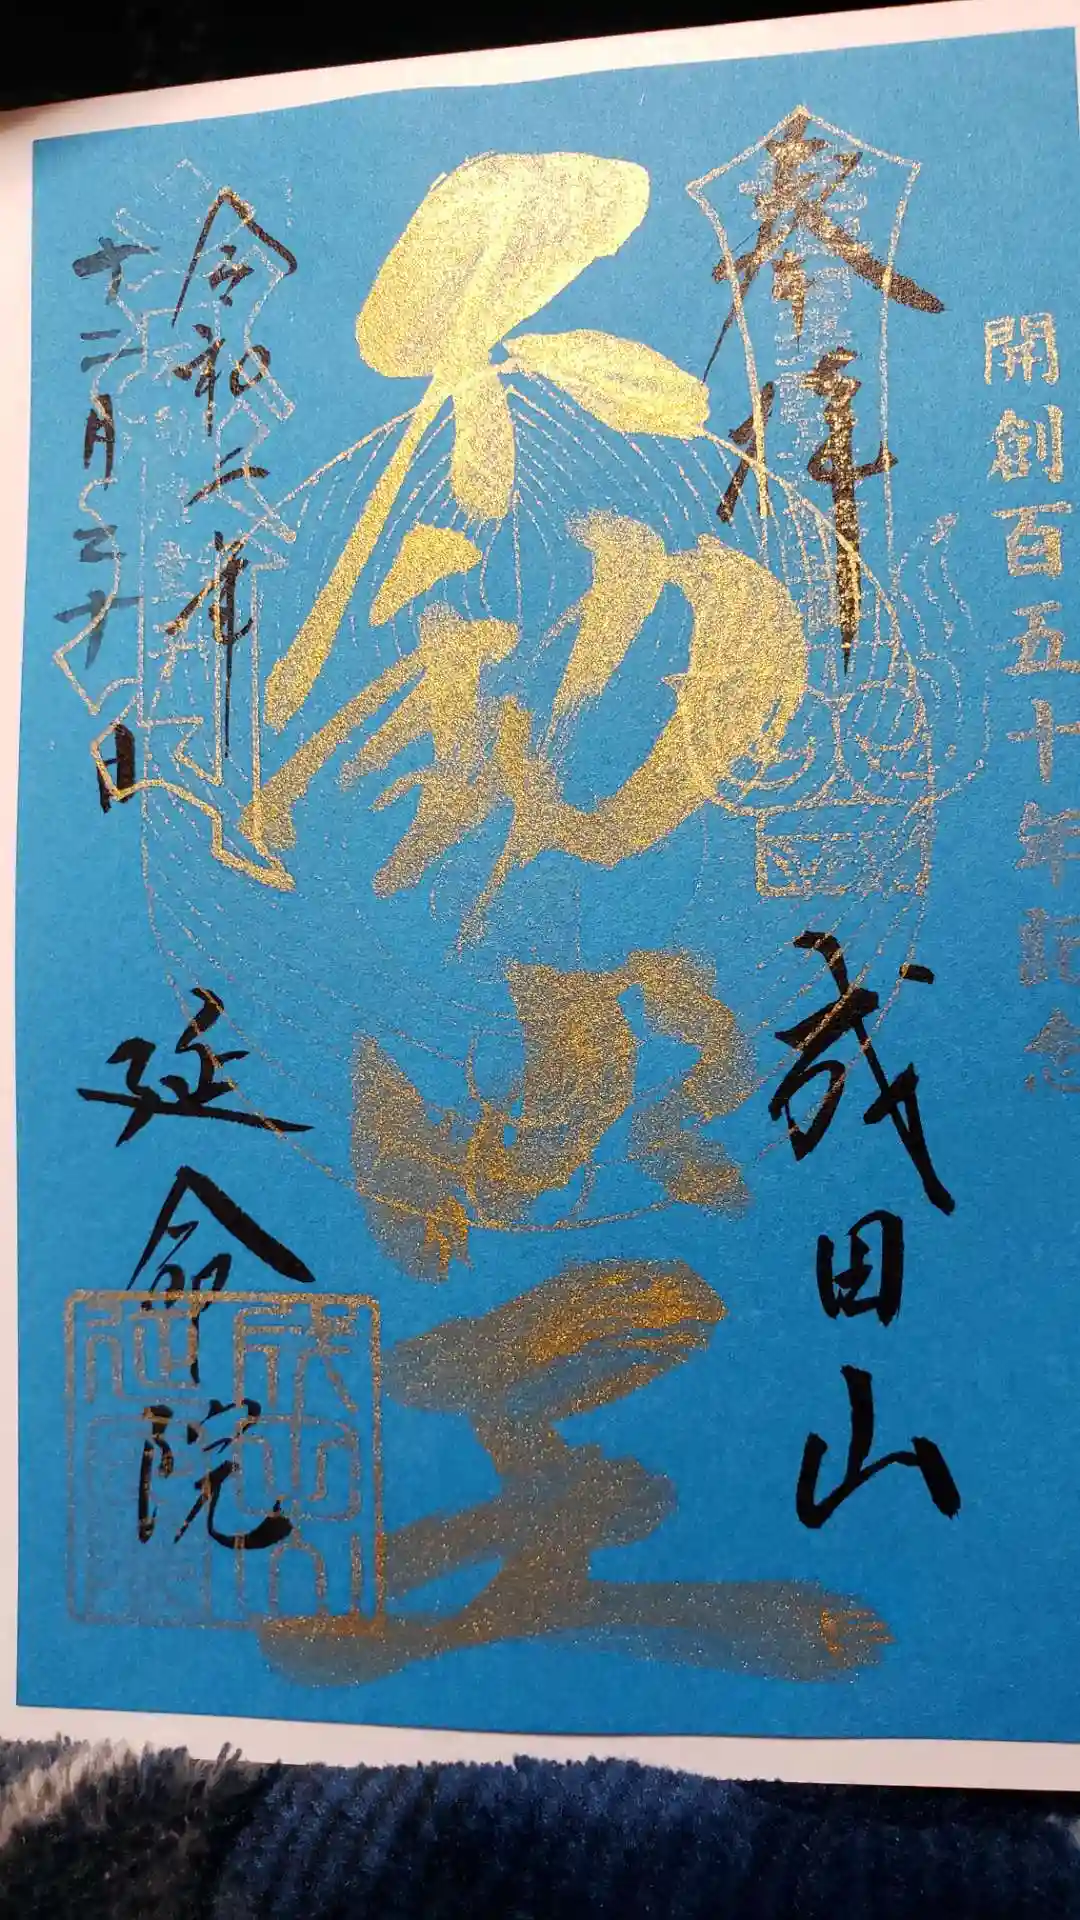 開創百五十年記念
奉拝
成田山
不動明王
令和二年
十二月三十日
延命院